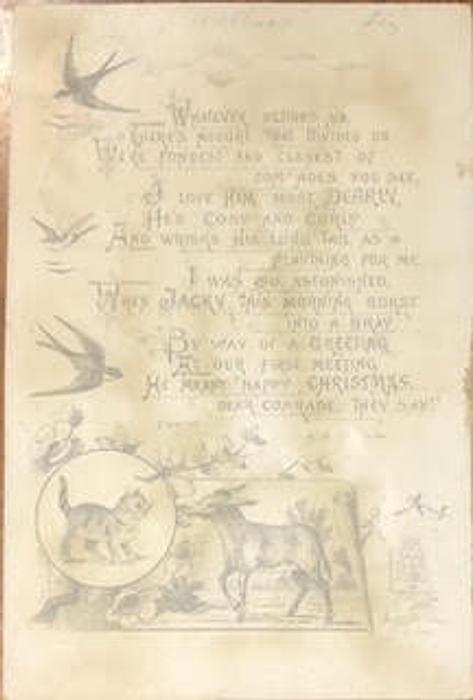 WHATEVER BETIDES US,
THERE'S NOUGHT THAT DIVIDES US
WE'RE FONDEST AND CLOSEST OF
COMRADES YOU SEE,
I LOVE HIM MOST DEARLY,
HE'S COSY AND CURLY
AND WHISKS HIS LONG TAIL AS A
PLAYTHING FOR ME.
I WAS SO ASTONISHED,
WHEN JACKY, THIS MORNING BURST
INTO A BRAY
BY WAY OF A GREETING
AT OUR FIRST MEETING
HE MEANT "HAPPY CHRISTMAS,
DEAR COMRADE, THEY SAY!"